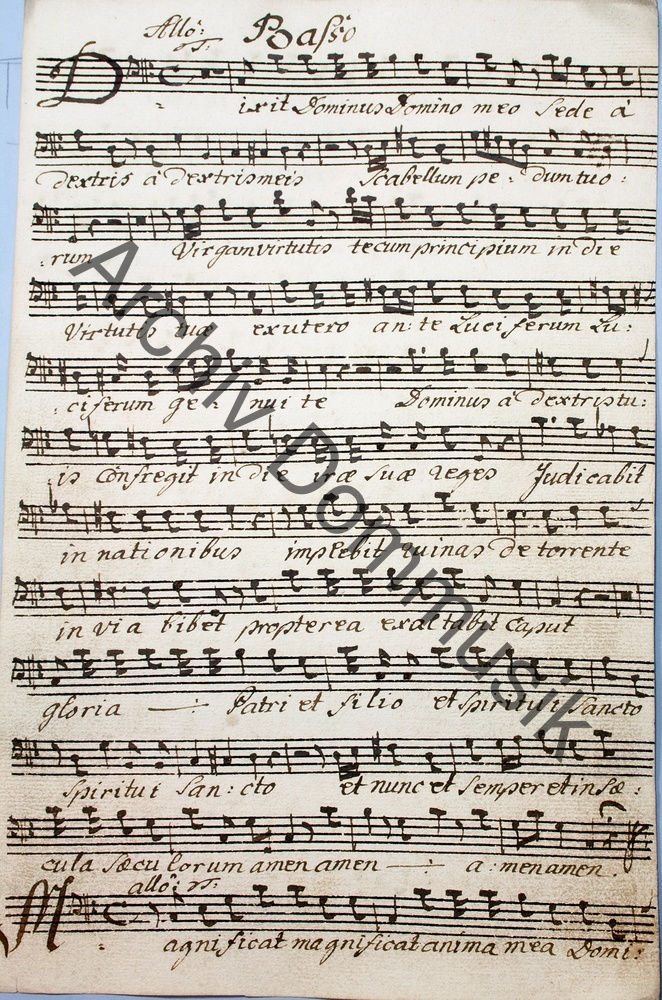 Allo: Basso
Dixit Dominus Domino meo Sede à
dextris à dextris meis Scabellum pe: dum tuo:
:rum Virgam virtutis tecum principium in die
Virtutis tuæ ex utero an: te Luciferum Lu:
:ciferum ge: nui te Dominus à dextris tu:
:is Confregit in die iræ suæ reges Judicabit
in nationibus implebit ruinas de torrente
in via bibet propterea exaltabit caput
gloria —:— Patri et filio et Spiritui Sancto
Spiritui San: cto et nunc et Semper et in Sæ:
cula Sæculorum amen amen —:— a: men amen.
allo:
Magnificat magnificat anima mea Domi:
Archiv Dommusik